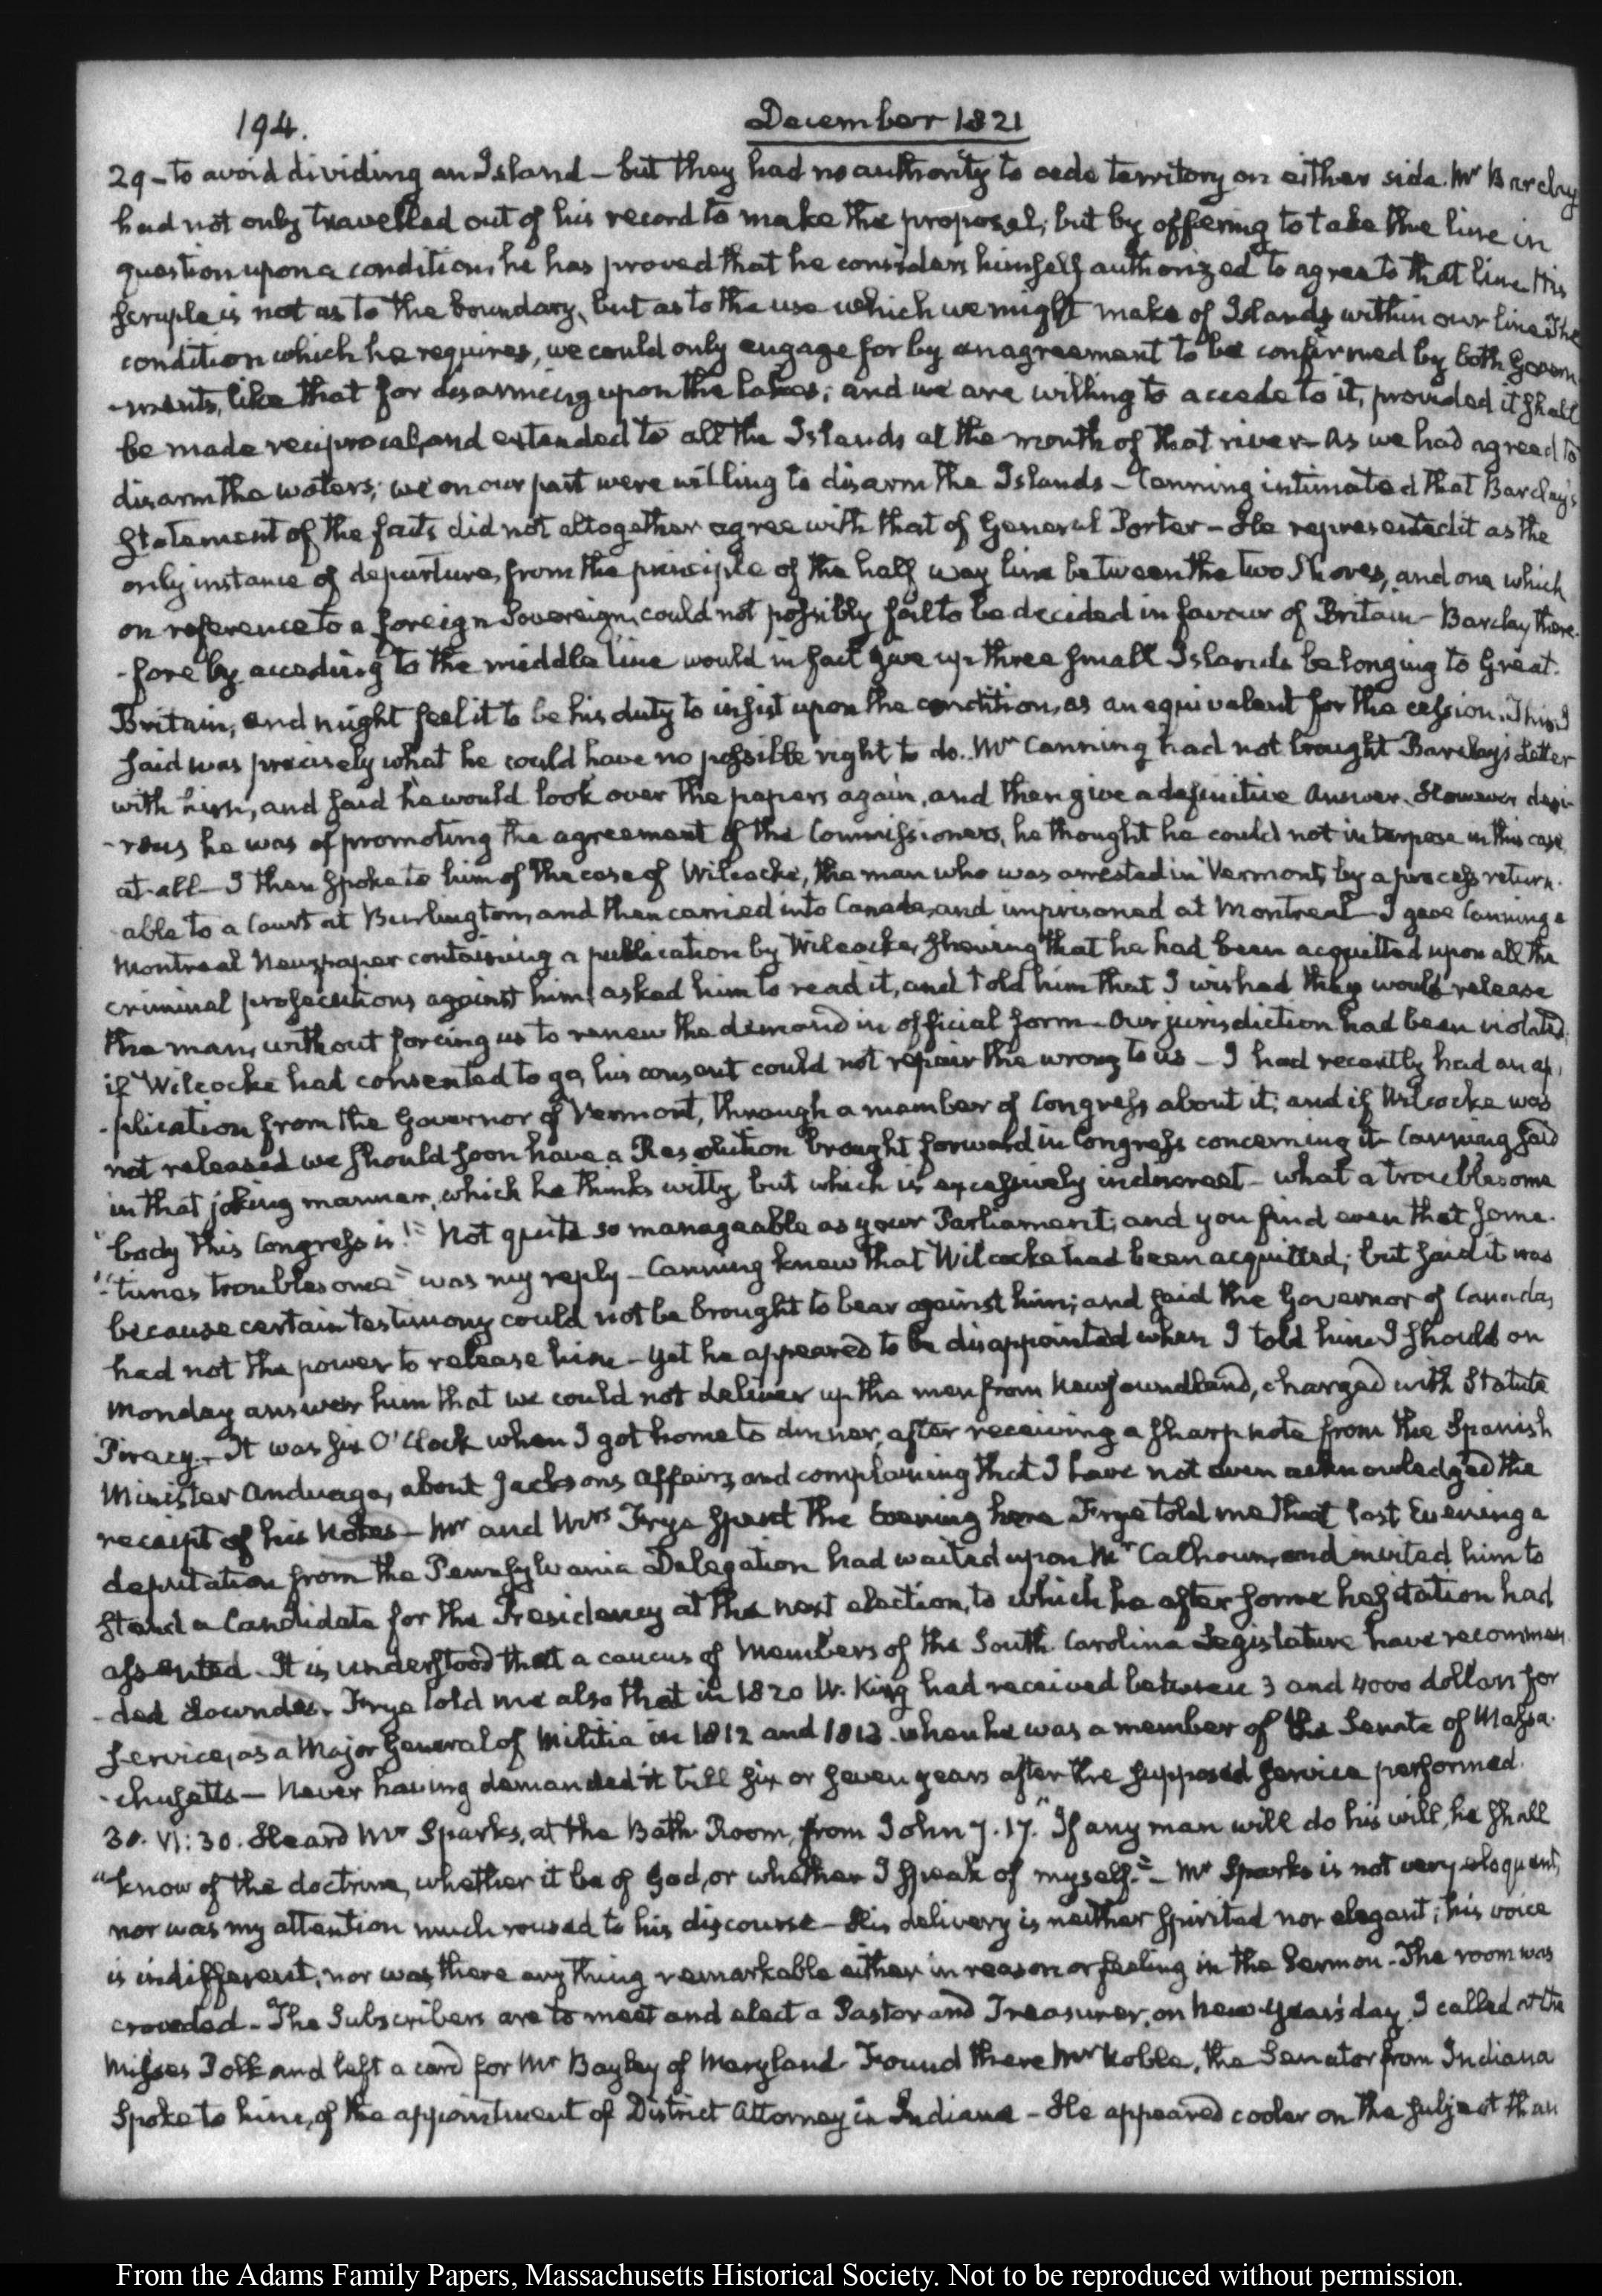 194.
December 1821
29 - to avoid dividing an Island - but they had no authority to cede territory on either side. Mr Barclay
had not only travelled out of his record to make the proposal; but by offering to take the line in
question upon a condition, he has proved that he considers himself authorized to agree to that line. His
scruple is not as to the boundary, but as to the use which we might make of Islands within our line. The
condition which he requires, we could only engage for by an agreement to be confirmed by both Govern-
-ments, like that for disarming upon the lakes; and we are willing to accede to it, provided it shall
be made reciprocal, and extended to all the Islands at the mouth of that river - As we had agreed to
disarm the waters; we on our part were willing to disarm the Islands - Canning intimated that Barclay's
statement of the facts did not altogether agree with that of General Porter - He represented it as the
only instance of departure, from the principle of the half way line between the two Shores, and one which
on reference to a foreign Sovereign, could not possibly fail to be decided in favour of Britain - Barclay there-
-fore by acceding to the middle line would in fact give up three small Islands belonging to Great-
Britain, and might feel it to be his duty to insist upon the condition, as an equivalent for the cession. This I
said was precisely what he could have no possible right to do.. Mr Canning had not brought Barclay's Letter
with him, and said he would look over the papers again, and then give a definitive Answer. However desi-
-rous he was of promoting the agreement of the Commissioners, he thought he could not interpose in this case
at all - I then spoke to him of the case of Wilcocke, the man who was arrested in Vermont, by a process return-
able to a Court at Burlington, and then carried into Canada, and imprisoned at Montreal - I gave Canning a
Montreal Newspaper containing a publication by Wilcocke, shewing that he had been acquitted upon all the
criminal prosecutions against him; asked him to read it, and told him that I wished they would release
the man, without forcing us to renew the demand in official form - Our jurisdiction had been violated
if Wilcocke had consented to go, his consent could not repair the wrong to us - I had recently had an ap-
-plication from the Governor of Vermont, through a member of Congress about it; and if Wilcocke was
not released we should soon have a Resolution brought forward in Congress concerning it - Canning said
in that joking manner, which he thinks witty, but which is excessively indiscreet - what a troublesome
"body this Congress is!" Not quite so manageable as your Parliament; and you find even that some-
"-times troublesome" was my reply - Canning knew that Wilcocke had been acquitted; but said it was
because certain testimony could not be brought to bear against him; and said the Governor of Canada,
had not the power to release him - Yet he appeared to be disappointed when I told him I should on
Monday answer him that we could not deliver up the men from Newfoundland, charged with Statute
Piracy. - It was six O'Clock when I got home to dinner, after receiving a sharp note from the Spanish
Minister Anduaga, about Jacksons Affairs, and complaining that I have not even acknowledged the
receipt of his Notes - Mr and Mrs Frye spent the Evening here. Frye told me that last Evening a
deputation from the Pennsylvania Delegation had waited upon Mr Calhoun, and invited him to
stand a Candidate for the Presidency at the next election, to which he after some hesitation had
assented - It is understood that a caucus of Members of the South Carolina Legislature have recommen-
-ded Lowndes. Frye told me also that in 1820 W. King had received between 3 and 4000 dollars for
service, as a Major General of Militia in 1812 and 1813. when he was a member of the Senate of Massa-
-chusetts - Never having demanded it till six or seven years after the supposed service performed.
30. VI:30. Heard Mr Sparks, at the Bath Room, from John 7.17. "If any man will do his will, he shall
"know of the doctrine, whether it be of God, or whether I speak of myself." - Mr Sparks is not very eloquent,
nor was my attention much roused to his discourse - His delivery is neither spirited nor elegant; his voice
is indifferent, nor was there any thing remarkable either in reason or feeling in the Sermon - The room was
crowded - The Subscribers are to meet and elect a Pastor and Treasurer, on New-Year's day. I called at the
Misses Polk and left a card for Mr Bayley of Maryland. Found there Mr Noble, the Senator from Indiana
Spoke to him, of the appointment of District Attorney in Indiana - He appeared cooler on the subject than
From the Adams Family Papers, Massachusetts Historical Society. Not to be reproduced without permission.